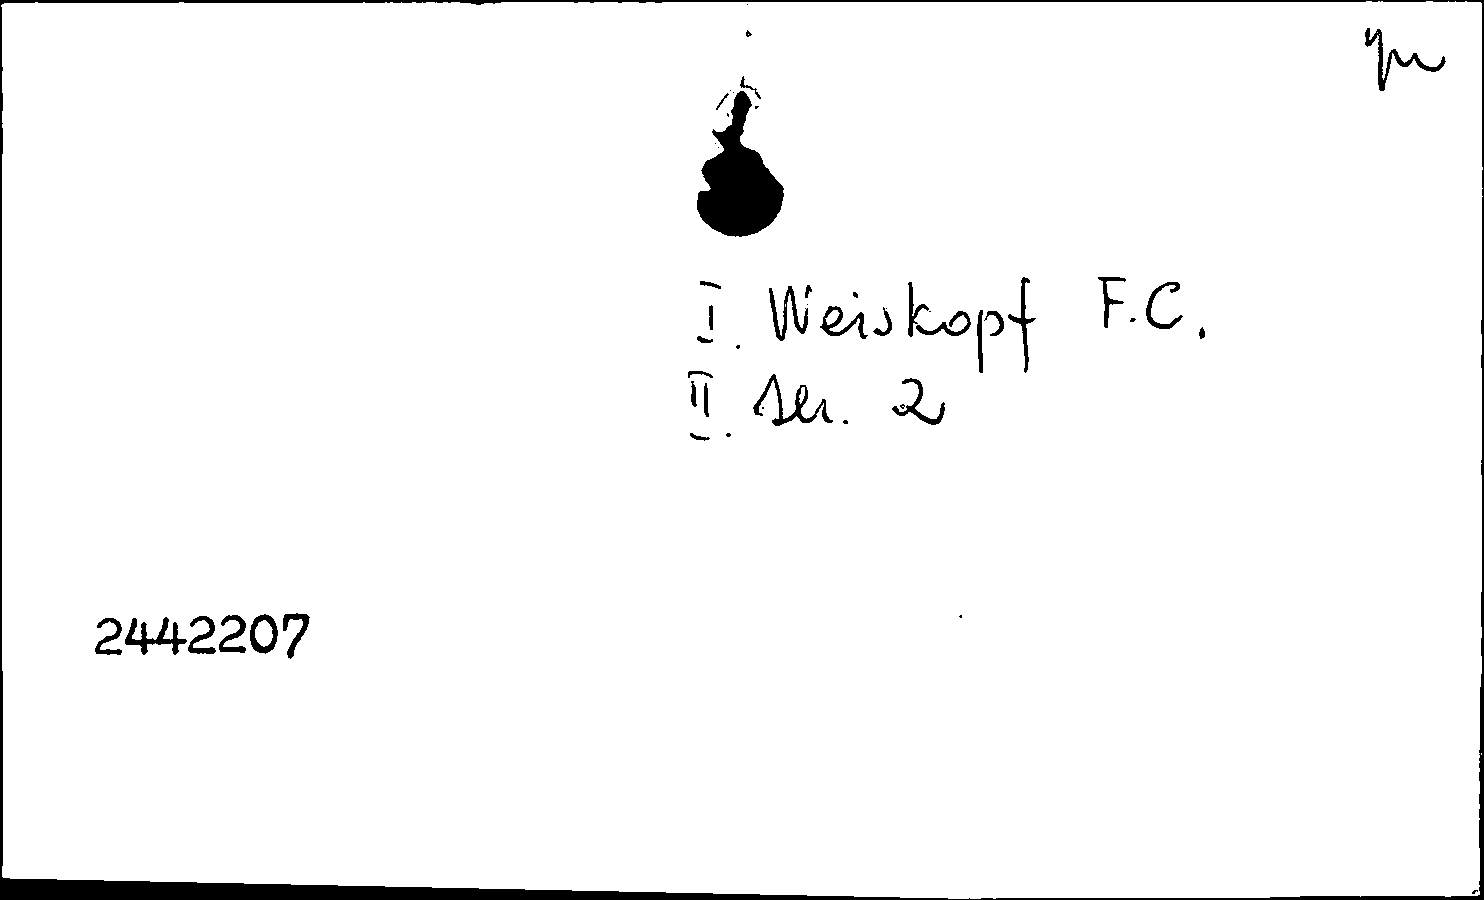 I. Weiskopf F.C.
II. ser. 2
2442207